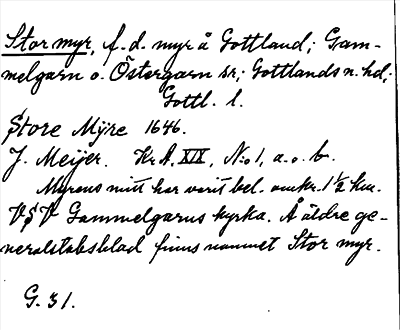 Stor myr, f. d. myr å Gottland; Gam-
melgarn o. Östergarn sr; Gottlands n. hd;
Gottl. l.
Store Mÿre 1646.
J. Meijer. Kr. A. XIX, N:o 1, a. o. b.
Myrens mitt har varit bel. omkr. 1 1/2 km.
VSV Gammelgarns kyrka. Å äldre ge-
neralstabsblad finns namnet Stor myr.
G. 31.